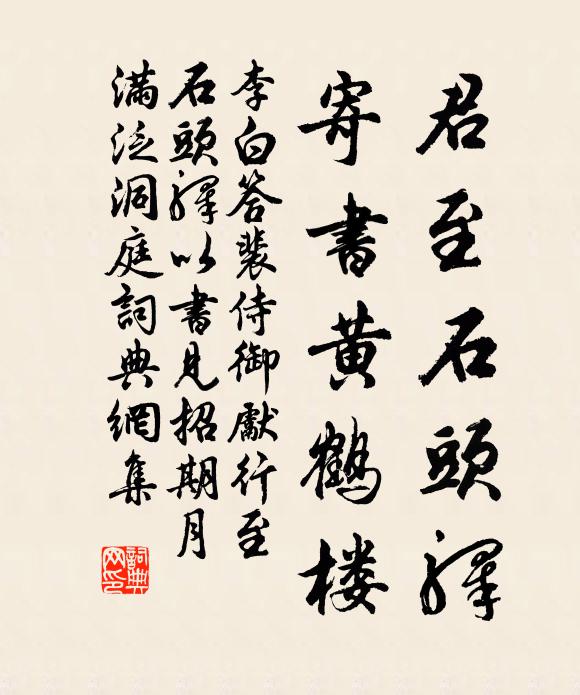 君至石頭驛
寄書黃鶴楼
李白答裴侍御獻行至
石頭驛以書見招期月
滿泛洞庭詞典網集
詞典
网印